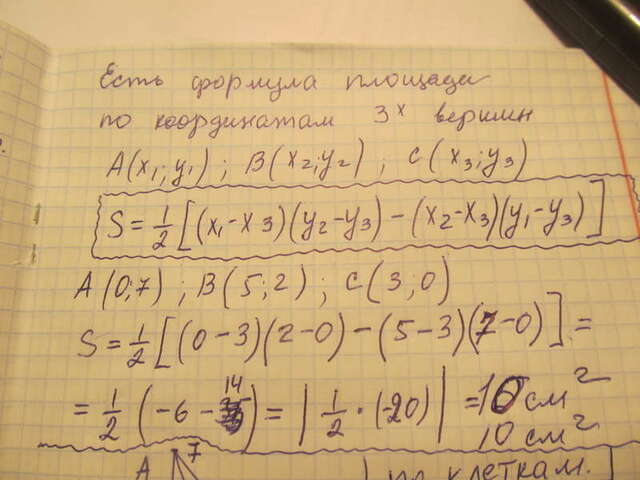 Есть формула площади
по координатам 3ˣ вершин
A(x₁;y₁) ; B(x₂;y₂) ; C(x₃;y₃)
S = 1/2 [(x₁-x3)(y₂-y₃) - (x₂-x₃)(y₁-y₃)]
A(0;7) ; B(5;2) ; C(3;0)
S = 1/2 [(0-3)(2-0) - (5-3)(7-0)] =
= 1/2 (-6 - 14) = | 1/2 · (-20) | = 10 см²
10 см²
A 7 по клеткам.